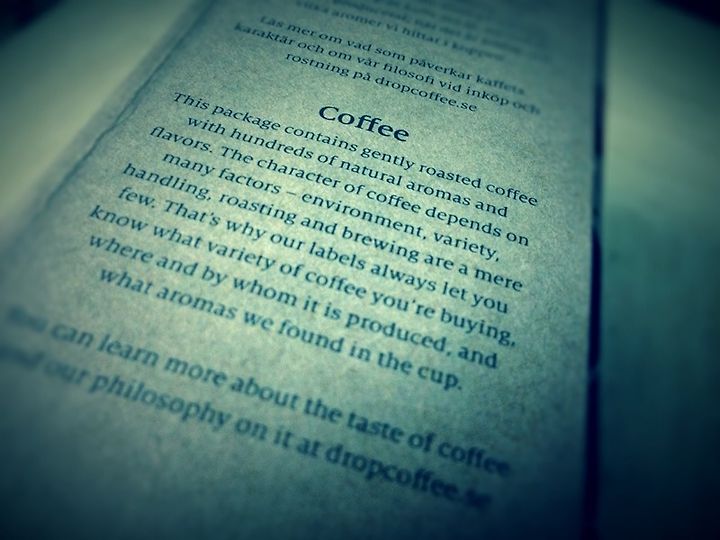 aromer vi hittar i koppen.
Läs mer om vad som påverkar kaffets
karaktär och om vår filosofi vid inköp och
rostning på dropcoffee.se
Coffee
This package contains gently roasted coffee
with hundreds of natural aromas and
flavors. The character of coffee depends on
many factors – environment, variety,
handling, roasting and brewing are a mere
few. That's why our labels always let you
know what variety of coffee you're buying,
where and by whom it is produced, and
what aromas we found in the cup.
You can learn more about the taste of coffee
and our philosophy on it at dropcoffee.se